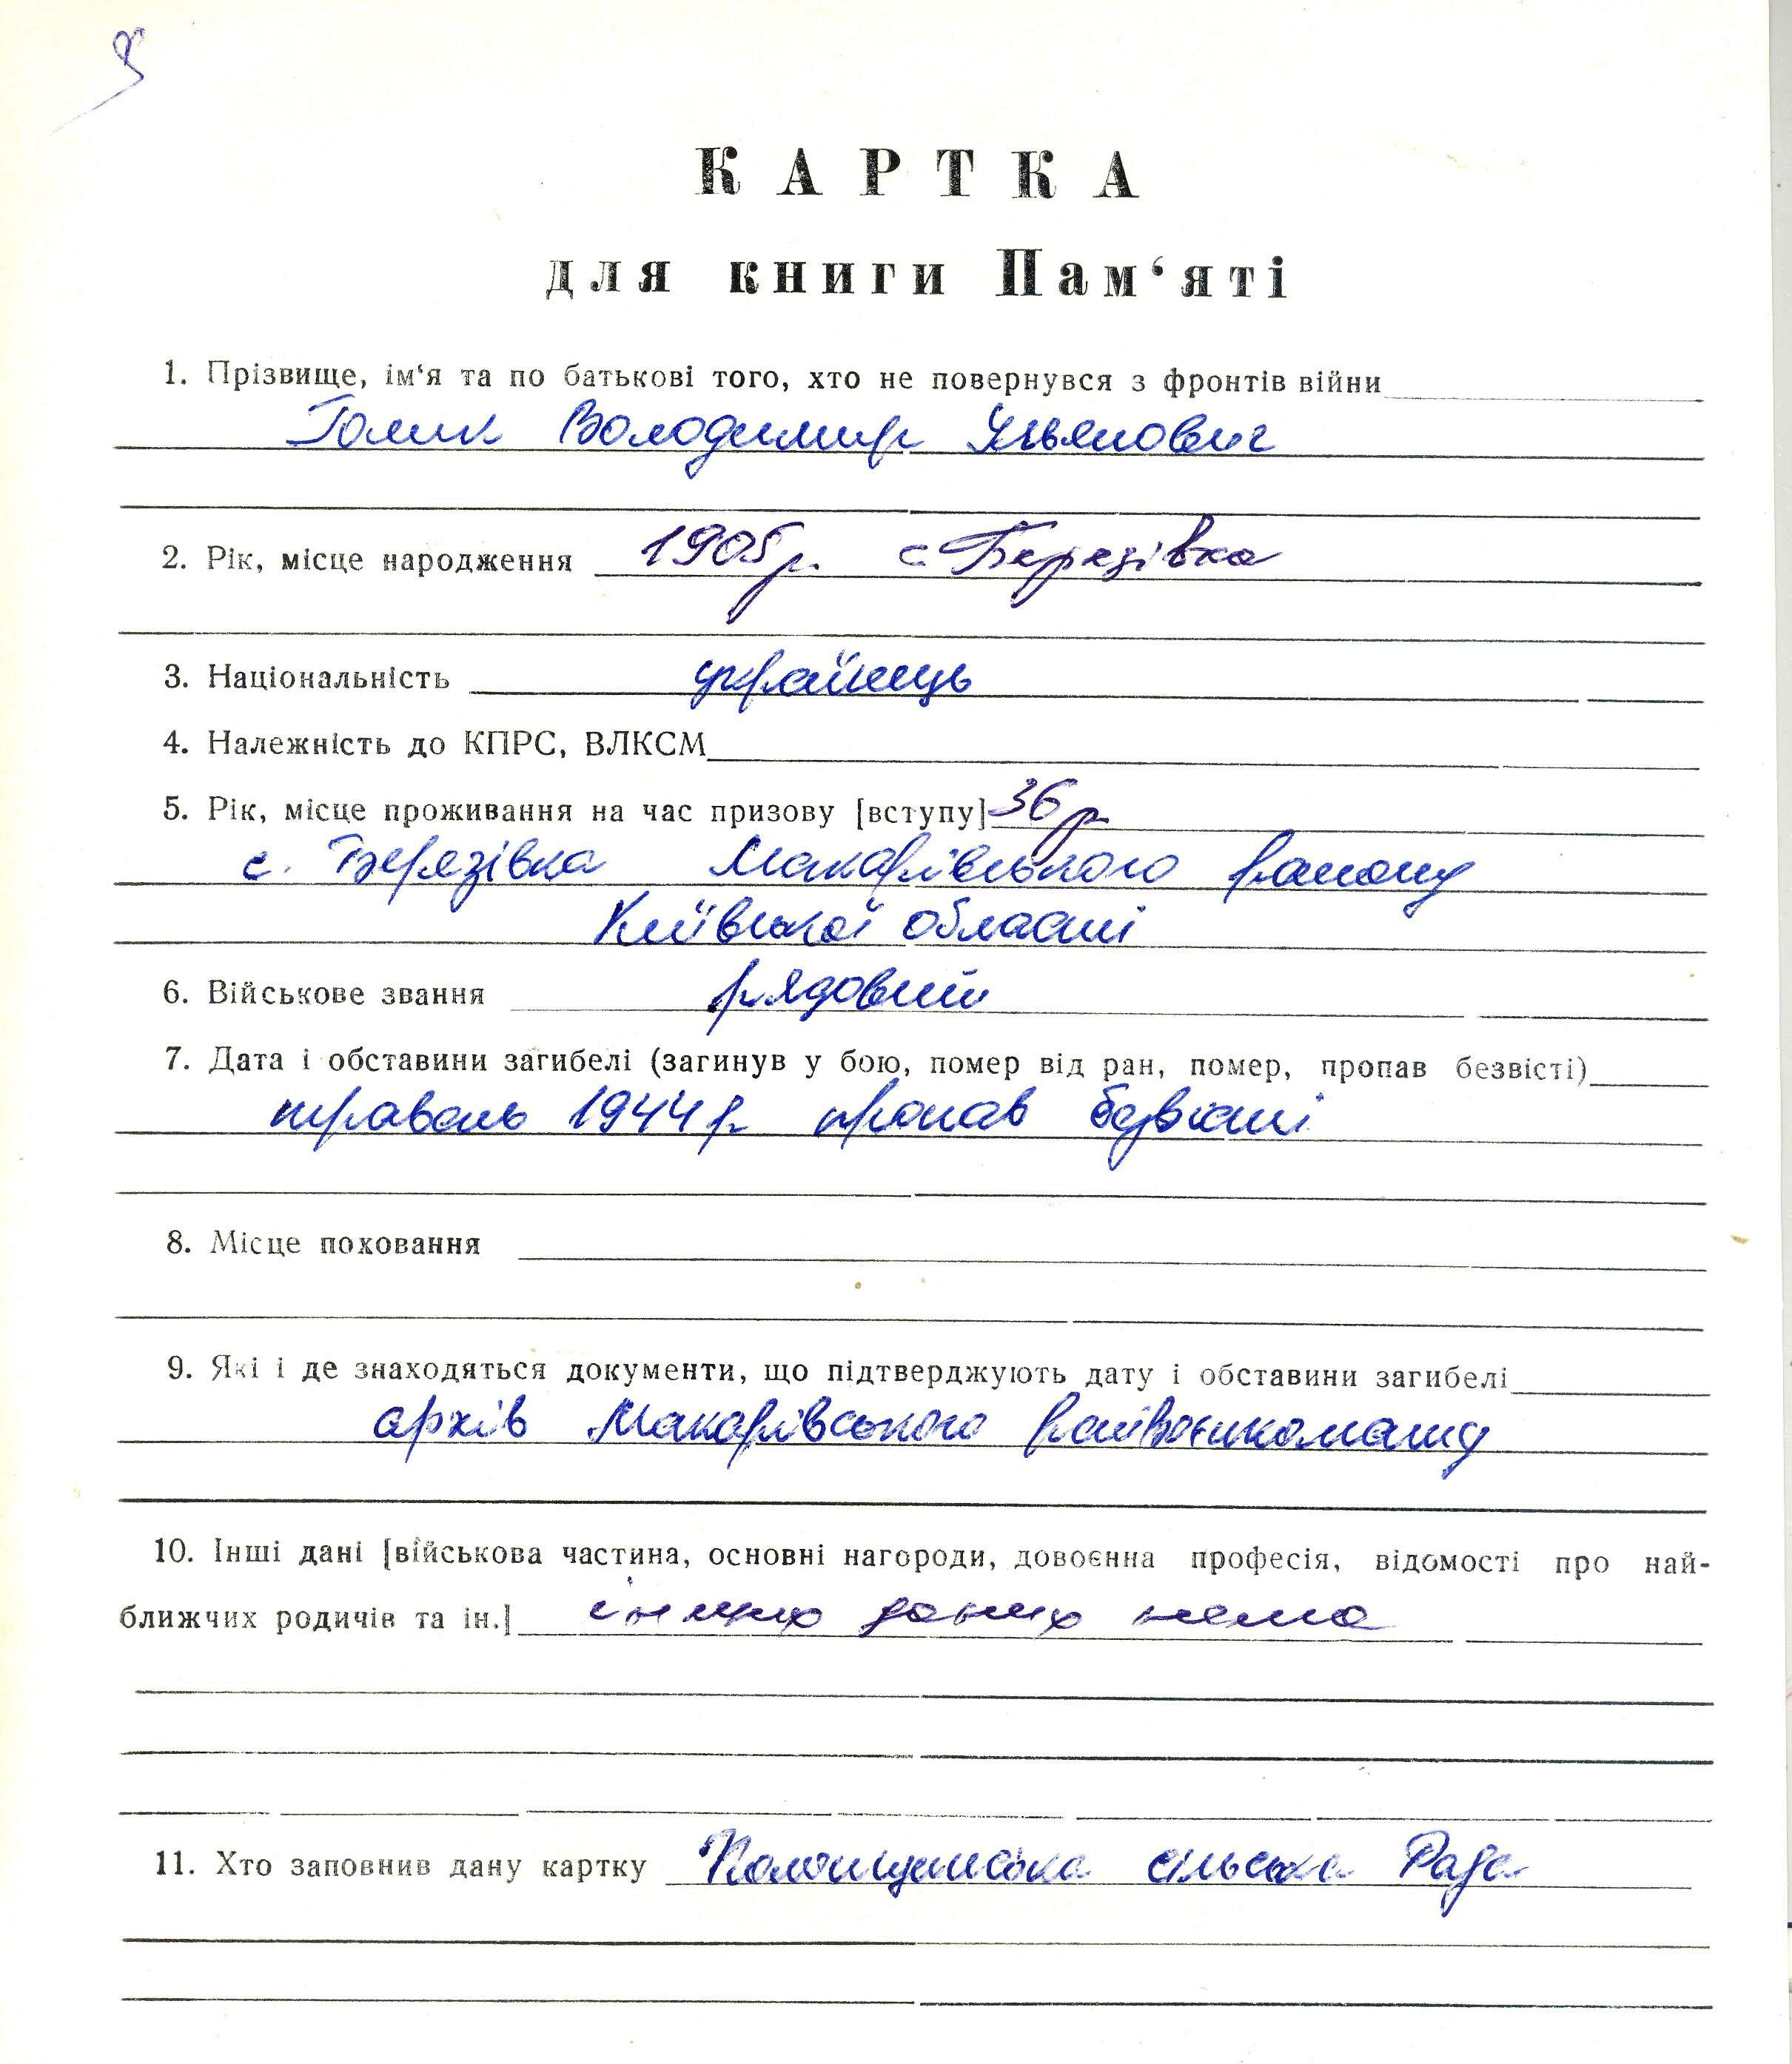 КАРТКА
для книги Пам‘яті
1. Прізвище, ім‘я та по батькові того, хто не повернувся з фронтів війни
Голик Володимир Ульянович
2. Рік, місце народження 1905р. с Березівка
3. Національність українець
4. Належність до КПРС, ВЛКСМ
5. Рік, місце проживання на час призову [вступу] 36 р
с. Березівка Макарівського району
Київської області
6. Військове звання рядовий
7. Дата і обставини загибелі (загинув у бою, помер від ран, помер, пропав безвісті)
травень 1944 р пропав безвісті
8. Місце поховання
9. Які і де знаходяться документи, що підтверджують дату і обставини загибелі
архів Макарівського райвоєнкомату
10. Інші дані [військова частина, основні нагороди, довоєнна професія, відомості про най-
ближчих родичів та ін.] інших даних нема
11. Хто заповнив дану картку сільська Рада